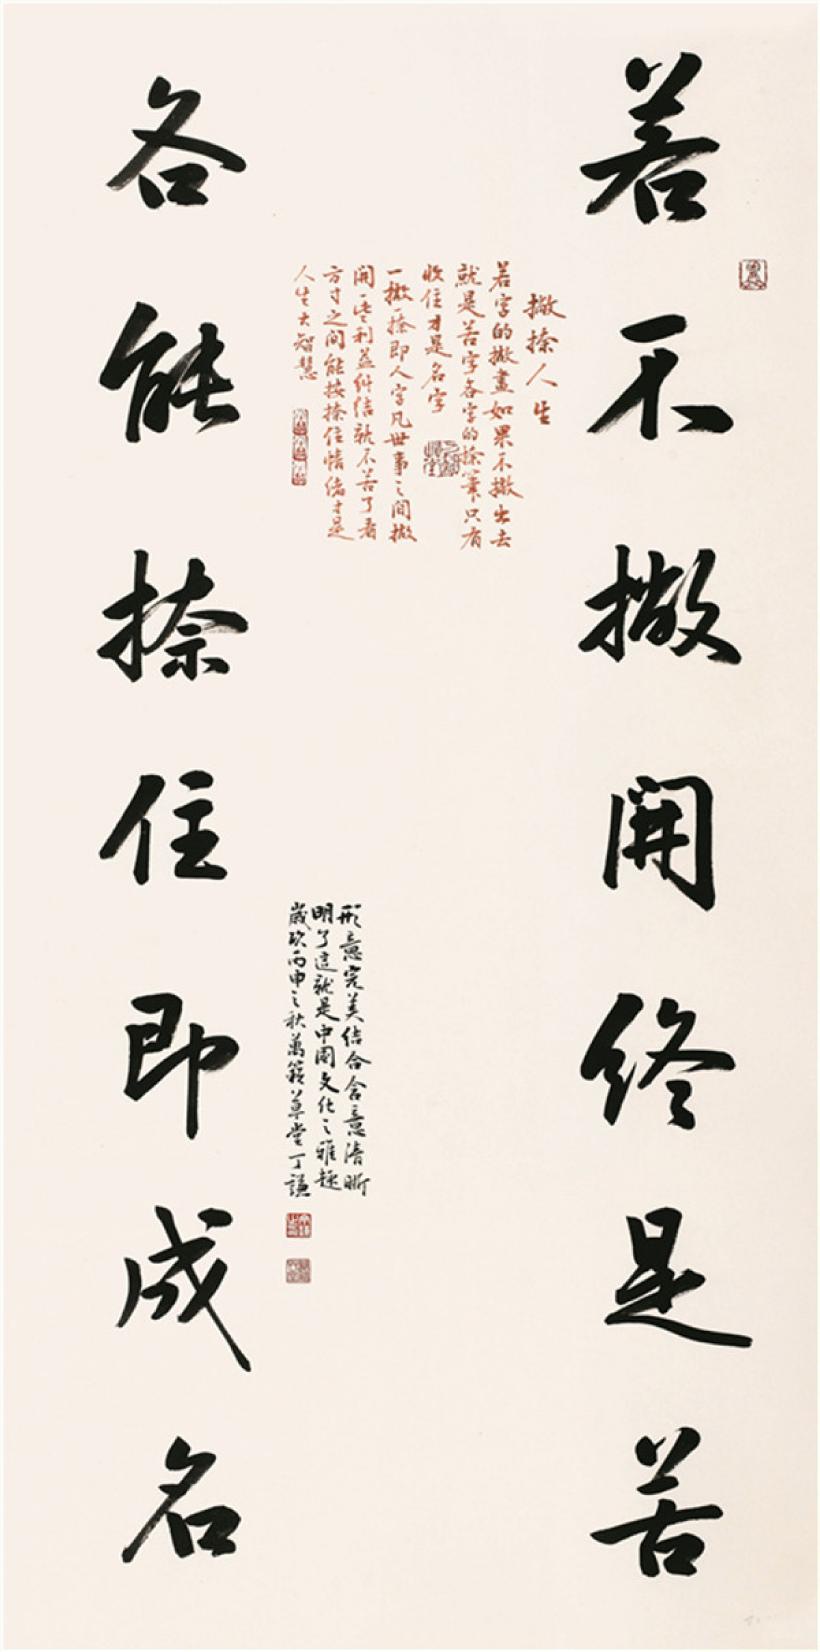 若不撇開終是苦
撇捺人生
若字的撇畫如果不撇出去
就是苦字各字的捺筆只有
收住才是名字
一撇一捺即人字凡世事之間撇
開一些利益糾結就不苦了看
方寸之間能按捺住情緒才是
人生大智慧
形意完美結合含意清晰
明了這就是中國文化之雅趣
歲次丙申之秋萬籟草堂丁謙
各能捺住即成名